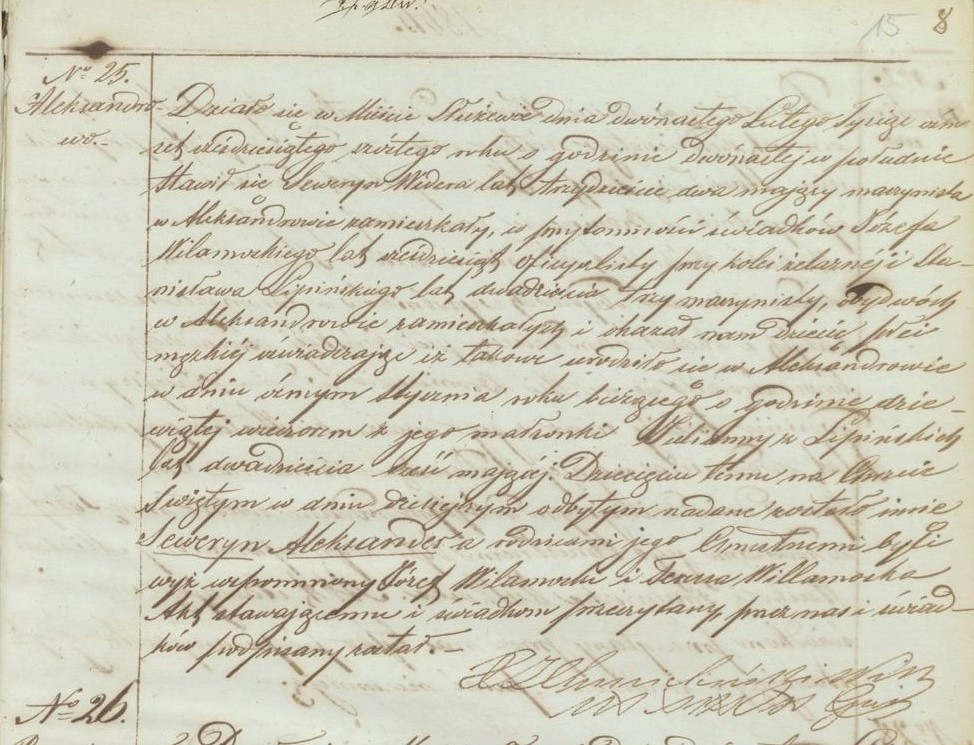 15 8
No 25.
Aleksandro
wo.-
Działo się w Mieście Służewie dnia dwónastego Lutego Tysiąc ośm
set sześdziesiątego szóstego roku o godzinie dwónastej w południe
Stawił się Seweryn Widera lat trzydzieście dwa mający maszynista
w Aleksandrowie zamieszkały, w przytomności świadków Józefa
Wilamoskiego lat sześdziesiąt oficyalisty przy kolei żelaznej i Sta-
nisława Lipińskiego lat dwadzieścia trzy maszynisty, obydwóch
w Aleksandrowie zamieszkałych i okazał nam dziecię płci
męzkiéj oświadczając iż takowe urodziło się w Aleksandrowie
w dniu ósmym Stycznia roku bieżącego o godzinie dzie-
wiątej wieczorem z jego małżonki z Lipińskich
lat dwadzieścia sześć mającéj. Dziecięciu temu na Chrzcie
Świętym w dniu dzisiejszym odbytym nadane zostało imie
Seweryn Aleksander a rodzicami jego Chrzestnemi byli
wyż wspomniony Józef Wilamoski i Teressa Willamoska
Akt stawającemu i świadkom przeczytany przez nas i świad-
ków podpisany został.-
No 26.